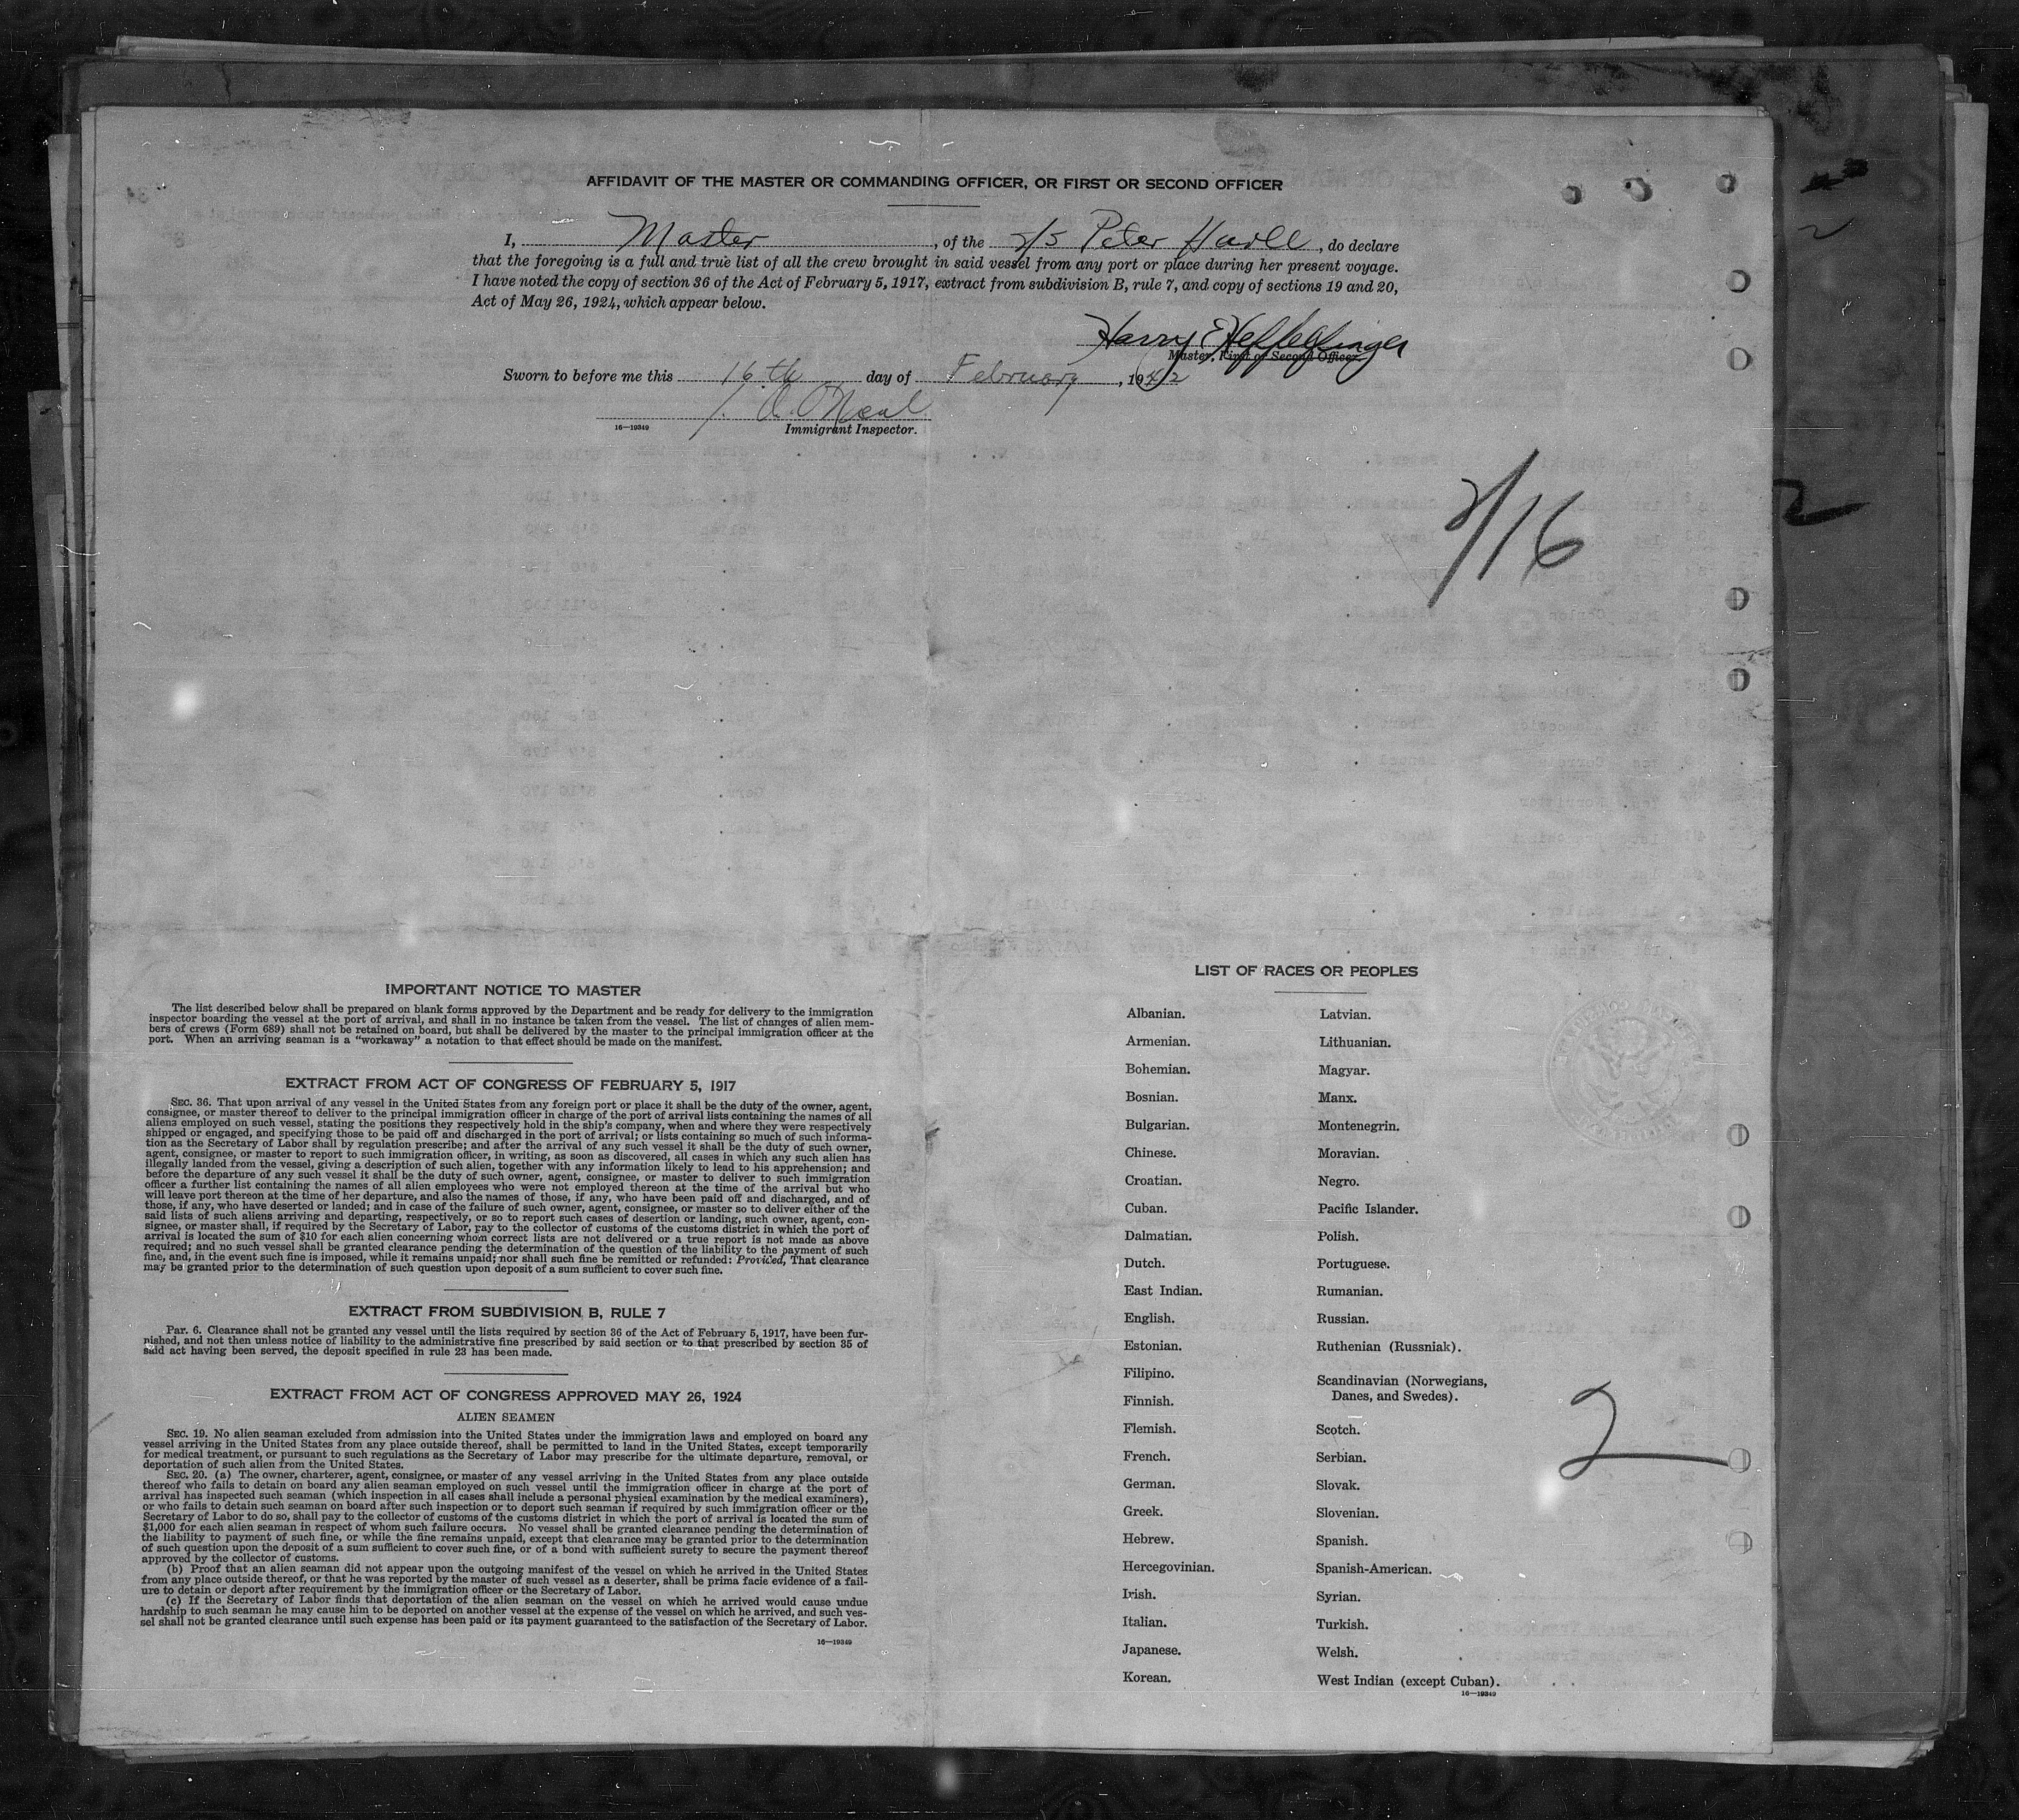 AFFIDAVIT OF THE MASTER OR COMMANDING OFFICER, OR FIRST OR SECOND OFFICER
I, Master, of the S/S Peter Hurll, do declare
that the foregoing is a full and true list of all the crew brought in said vessel from any port or place during her present voyage.
I have noted the copy of section 36 of the Act of February 5, 1917, extract from subdivision B, rule 7, and copy of sections 19 and 20,
Act of May 26, 1924, which appear below.
Harry E Heffelfinger
Master, First or Second Officer.
Sworn to before me this 16th day of February, 1942
O'Neal
16—19349 Immigrant Inspector.
2/16
IMPORTANT NOTICE TO MASTER
The list described below shall be prepared on blank forms approved by the Department and be ready for delivery to the immigration
inspector boarding the vessel at the port of arrival, and shall in no instance be taken from the vessel. The list of changes of alien mem-
bers of crews (Form 689) shall not be retained on board, but shall be delivered by the master to the principal immigration officer at the
port. When an arriving seaman is a "workaway" a notation to that effect should be made on the manifest.
EXTRACT FROM ACT OF CONGRESS OF FEBRUARY 5, 1917
SEC. 36. That upon arrival of any vessel in the United States from any foreign port or place it shall be the duty of the owner, agent,
consignee, or master thereof to deliver to the principal immigration officer in charge of the port of arrival lists containing the names of all
aliens employed on such vessel, stating the positions they respectively hold in the ship's company, when and where they were respectively
shipped or engaged, and specifying those to be paid off and discharged in the port of arrival; or lists containing so much of such informa-
tion as the Secretary of Labor shall by regulation prescribe; and after the arrival of any such vessel it shall be the duty of such owner,
agent, consignee, or master to report to such immigration officer, in writing, as soon as discovered, all cases in which any such alien has
illegally landed from the vessel, giving a description of such alien, together with any information likely to lead to his apprehension; and
before the departure of any such vessel it shall be the duty of such owner, agent, consignee, or master to deliver to such immigration
officer a further list containing the names of all alien employees who were not employed thereon at the time of the arrival but who
will leave port thereon at the time of her departure, and also the names of those, if any, who have been paid off and discharged, and of
those, if any, who have deserted or landed; and in case of the failure of such owner, agent, consignee, or master so to deliver either of the
said lists of such aliens arriving and departing, respectively, or so to report such cases of desertion or landing, such owner, agent, con-
signee, or master shall, if required by the Secretary of Labor, pay to the collector of customs of the customs district in which the port of
arrival is located the sum of $10 for each alien concerning whom correct lists are not delivered or a true report is not made as above
required; and no such vessel shall be granted clearance pending the determination of the question of the liability to the payment of such
fine, and, in the event such fine is imposed, while it remains unpaid; nor shall such fine be remitted or refunded: Provided, That clearance
may be granted prior to the determination of such question upon deposit of a sum sufficient to cover such fine.
EXTRACT FROM SUBDIVISION B, RULE 7
PAR. 6. Clearance shall not be granted any vessel until the lists required by section 36 of the Act of February 5, 1917, have been fur-
nished, and not then unless notice of liability to the administrative fine prescribed by said section or to that prescribed by section 35 of
said act having been served, the deposit specified in rule 23 has been made.
EXTRACT FROM ACT OF CONGRESS APPROVED MAY 26, 1924
ALIEN SEAMEN
SEC. 19. No alien seaman excluded from admission into the United States under the immigration laws and employed on board any
vessel arriving in the United States from any place outside thereof, shall be permitted to land in the United States, except temporarily
for medical treatment, or pursuant to such regulations as the Secretary of Labor may prescribe for the ultimate departure, removal, or
deportation of such alien from the United States.
SEC. 20. (a) The owner, charterer, agent, consignee, or master of any vessel arriving in the United States from any place outside
thereof who fails to detain on board any alien seaman employed on such vessel until the immigration officer in charge at the port of
arrival has inspected such seaman (which inspection in all cases shall include a personal physical examination by the medical examiners),
or who fails to detain such seaman on board after such inspection or to deport such seaman if required by such immigration officer or the
Secretary of Labor to do so, shall pay to the collector of customs of the customs district in which the port of arrival is located the sum of
$1,000 for each alien seaman in respect of whom such failure occurs. No vessel shall be granted clearance pending the determination of
the liability to payment of such fine, or while the fine remains unpaid, except that clearance may be granted prior to the determination
of such question upon the deposit of a sum sufficient to cover such fine, or of a bond with sufficient surety to secure the payment thereof
approved by the collector of customs.
(b) Proof that an alien seaman did not appear upon the outgoing manifest of the vessel on which he arrived in the United States
from any place outside thereof, or that he was reported by the master of such vessel as a deserter, shall be prima facie evidence of a fail-
ure to detain or deport after requirement by the immigration officer or the Secretary of Labor.
(c) If the Secretary of Labor finds that deportation of the alien seaman on the vessel on which he arrived would cause undue
hardship to such seaman he may cause him to be deported on another vessel at the expense of the vessel on which he arrived, and such ves-
sel shall not be granted clearance until such expense has been paid or its payment guaranteed to the satisfaction of the Secretary of Labor.
16—19349
LIST OF RACES OR PEOPLES
Albanian.
Armenian.
Bohemian.
Bosnian.
Bulgarian.
Chinese.
Croatian.
Cuban.
Dalmatian.
Dutch.
East Indian.
English.
Estonian.
Filipino.
Finnish.
Flemish.
French.
German.
Greek.
Hebrew.
Hercegovinian.
Irish.
Italian.
Japanese.
Korean.
Latvian.
Lithuanian.
Magyar.
Manx.
Montenegrin.
Moravian.
Negro.
Pacific Islander.
Polish.
Portuguese.
Rumanian.
Russian.
Ruthenian (Russniak).
Scandinavian (Norwegians,
Danes, and Swedes).
Scotch.
Serbian.
Slovak.
Slovenian.
Spanish.
Spanish-American.
Syrian.
Turkish.
Welsh.
West Indian (except Cuban).
16—19349
2
2